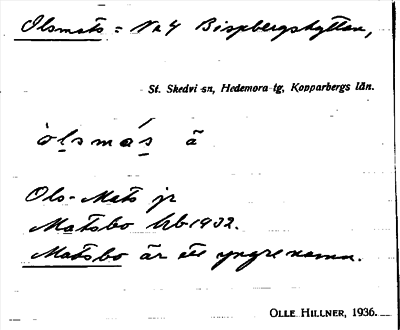 Olsmats = No 4 Bispbergshyttan,
St. Skedvi sn, Hedemora tg, Kopparbergs län.
òlsmás ä
Ols-Mats jr
Matsbo krb 1932.
Matsbo är ett yngre namn.
OLLE HILLNER, 1936.